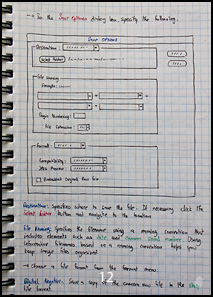 → In the User Options dialog box, specify the following.
User Options
Destination:
Select Folder
File Naming
Example:
+
+
+
Begin Numbering:
File Extension:
Format:
Compatibility:
JPEG Preview:
Embedded Original Raw File
Destination: Specifies where to save the file. If necessary click the
Select Folder button and navigate to the location
File Naming: Specifies the filename using a naming convention that
includes elements such as date and camera serial number. Using
informative filenames based on a naming convention helps you
keep image files organized.
→ Choose a file format from the Format menu
12
Digital Negative: Saves a copy of the camera raw file in the DNG
file format.